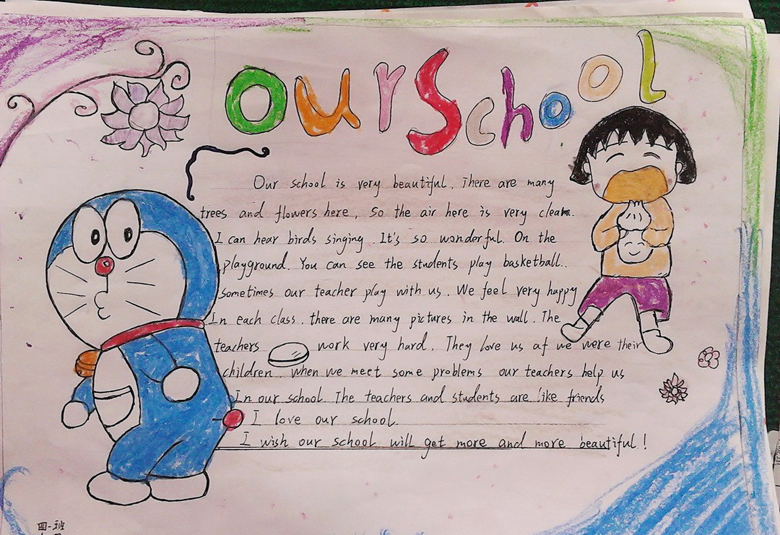 Our School
Our school is very beautiful. There are many
trees and flowers here, So the air here is very clean.
I can hear birds singing. It's so wonderful. On the
playground. You can see the students play basketball.
sometimes our teacher play with us. We feel very happy
In each class. there are many pictures in the wall. The
teachers work very hard. They love us af we were their
children. when we meet some problems our teachers help us
In our school. The teachers and students are like friends
I love our school.
I wish our school will get more and more beautiful!
四-班